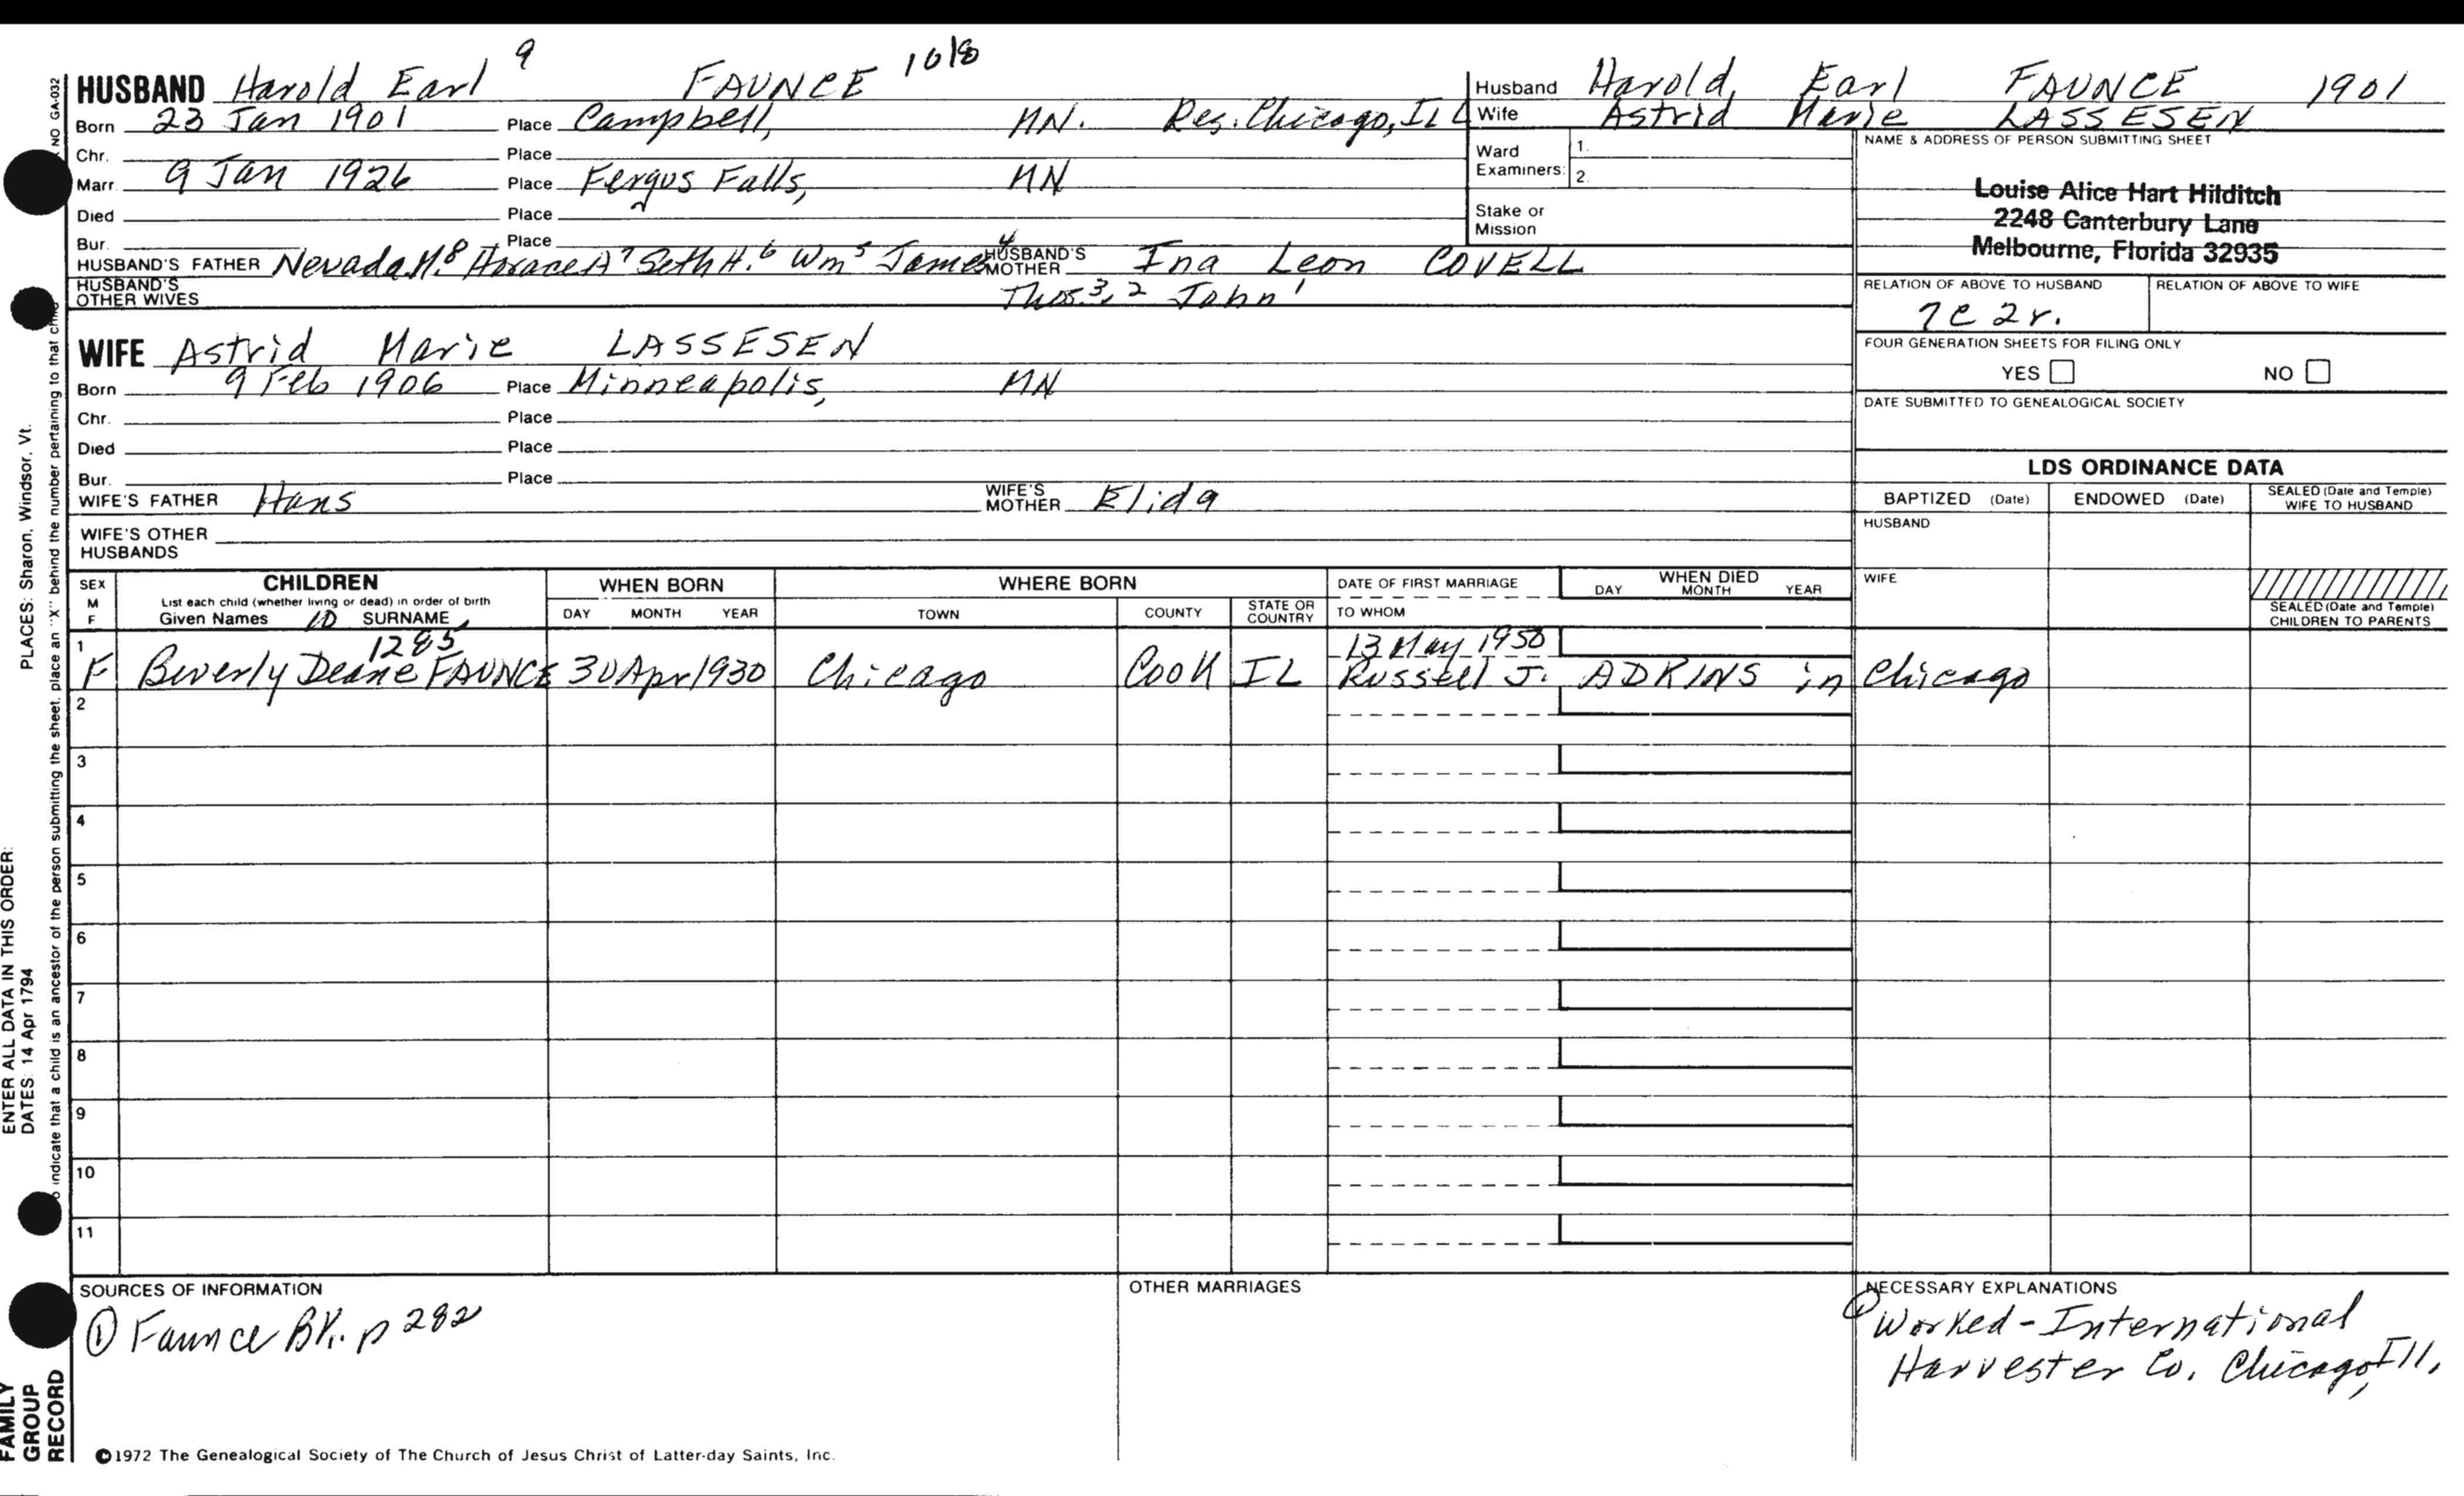 HUSBAND Harold Earl 9 FAUNCE 1018
Born 23 Jan 1901 Place Campbell, MN. Res. Chicago, IL
Chr. Place
Marr. 9 Jan 1926 Place Fergus Falls, MN
Died Place
Bur. Place
HUSBAND'S FATHER Nevada H.8 Horace A7 Seth H.6 Wm5 James4 HUSBAND'S MOTHER Ina Leon COVELL
HUSBAND'S OTHER WIVES Thos.3,2 John1
WIFE Astrid Marie LASSESEN
Born 9 Feb 1906 Place Minneapolis, MN
Chr. Place
Died Place
Bur. Place
WIFE'S FATHER Hans WIFE'S MOTHER Elida
WIFE'S OTHER HUSBANDS
Husband Harold Earl FAUNCE 1901
Wife Astrid Marie LASSESEN
Ward Examiners: 1. 2.
Stake or Mission
NAME & ADDRESS OF PERSON SUBMITTING SHEET
Louise Alice Hart Hilditch
2248 Canterbury Lane
Melbourne, Florida 32935
RELATION OF ABOVE TO HUSBAND RELATION OF ABOVE TO WIFE
7C 2r.
FOUR GENERATION SHEETS FOR FILING ONLY
YES NO
DATE SUBMITTED TO GENEALOGICAL SOCIETY
LDS ORDINANCE DATA
BAPTIZED (Date) ENDOWED (Date) SEALED (Date and Temple) WIFE TO HUSBAND
HUSBAND
WIFE
SEALED (Date and Temple) CHILDREN TO PARENTS
SEX M F CHILDREN WHEN BORN WHERE BORN DATE OF FIRST MARRIAGE WHEN DIED
List each child (whether living or dead) in order of birth
Given Names 10 SURNAME DAY MONTH YEAR TOWN COUNTY STATE OR COUNTRY TO WHOM DAY MONTH YEAR
1 1285 13 May 1950
F Beverly Deane FAUNCE 30 Apr 1930 Chicago Cook IL Russell J. ADKINS in Chicago
2
3
4
5
6
7
8
9
10
11
SOURCES OF INFORMATION
① Faunce Bk. p 282
OTHER MARRIAGES
NECESSARY EXPLANATIONS
① Worked - International
Harvester Co. Chicago, Ill.
©1972 The Genealogical Society of The Church of Jesus Christ of Latter-day Saints, Inc.
NO GA-032
indicate that a child is an ancestor of the person submitting the sheet, place an "X" behind the number pertaining to that child
PLACES: Sharon, Windsor, Vt.
ENTER ALL DATA IN THIS ORDER:
DATES: 14 Apr 1794
FAMILY
GROUP
RECORD